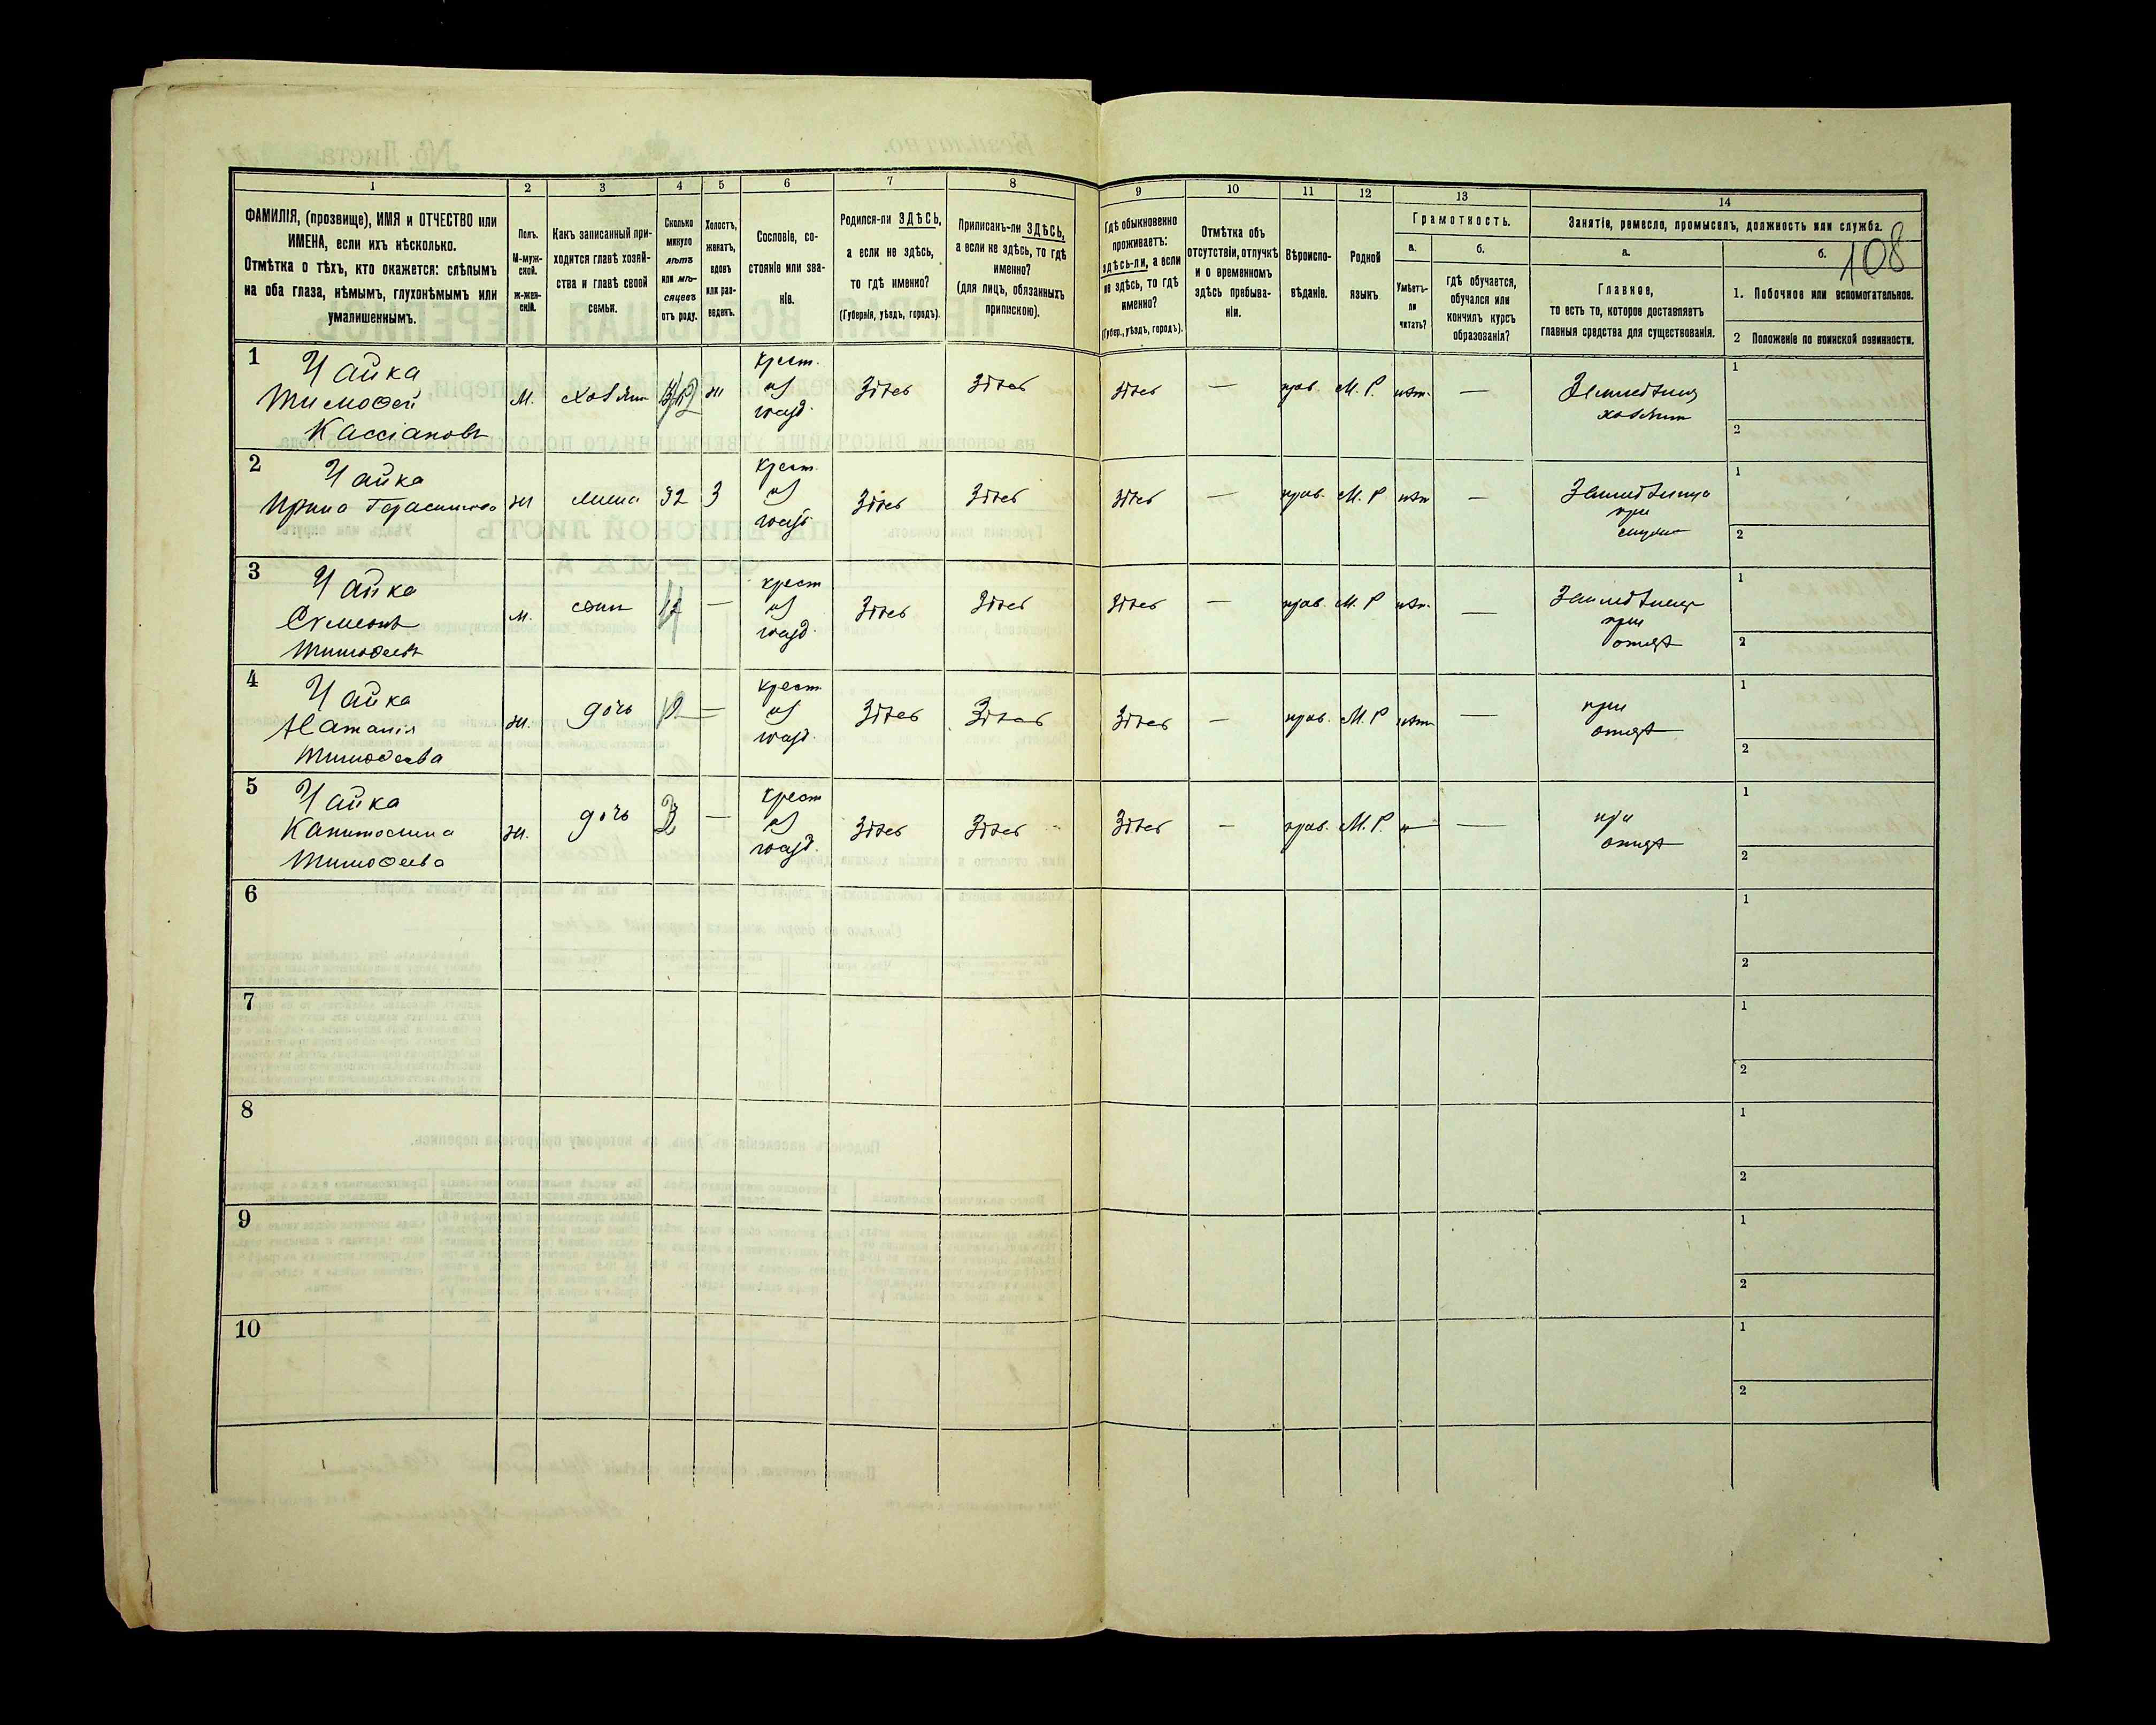 1 2 3 4 5 6 7 8 9 10 11 12 13 14
ФАМИЛІЯ, (прозвище), ИМЯ и ОТЧЕСТВО или
ИМЕНА, если ихъ нѣсколько.
Отмѣтка о тѣхъ, кто окажется: слѣпымъ
на оба глаза, нѣмымъ, глухонѣмымъ или
умалишеннымъ.
Полъ.
М-муж-
ской.
ж-жен-
скій.
Какъ записанный при-
ходится главѣ хозяй-
ства и главѣ своей
семьи.
Сколько
минуло
лѣтъ
или мѣ-
сяцевъ
отъ роду.
Холостъ,
женатъ,
вдовъ
или раз-
веденъ.
Сословіе, со-
стояніе или зва-
ніе.
Родился-ли ЗДѢСЬ,
а если не здѣсь,
то гдѣ именно?
(Губернія, уѣздъ, городъ).
Приписанъ-ли ЗДѢСЬ,
а если не здѣсь, то гдѣ
именно?
(для лицъ, обязанныхъ
припискою).
Гдѣ обыкновенно
проживаетъ:
здѣсь-ли, а если
не здѣсь, то гдѣ
именно?
(Губер., уѣздъ, городъ).
Отмѣтка объ
отсутствіи, отлучкѣ
и о временномъ
здѣсь пребыва-
ніи.
Вѣроиспо-
вѣданіе.
Родной
языкъ.
Грамотность.
а.
Умѣетъ-
ли
читать?
б.
гдѣ обучается,
обучался или
кончилъ курсъ
образованія?
Занятіе, ремесло, промыселъ, должность или служба.
а.
Главное,
то есть то, которое доставляетъ
главныя средства для существованія.
б.
108
1. Побочное или вспомогательное.
2 Положеніе по воинской повинности.
1 Чайка
Тимофей
Кассіановъ
М. хозяинъ 42 ж
крест.
из
влад.
Здѣсь Здѣсь Здѣсь — прав. М. Р. нѣт. —
Земледѣлец
хозяин
1
2
2 Чайка
Ирина Герасимова
ж жена 32 З
крест.
из
влад.
Здѣсь Здѣсь Здѣсь — прав. М. Р нѣт —
Земледѣлица
при
1
2
3 Чайка
Симеонъ
Тимофеевъ
М. сынъ —
крест
из
влад.
Здѣсь Здѣсь Здѣсь — прав. М. Р нѣт. —
Земледѣлец
при
отцѣ
1
2
4 Чайка
Наталія
Тимофеева
ж. дочь 12 —
крест
из
влад.
Здѣсь Здѣсь Здѣсь — прав. М. Р нѣт —
при
отцѣ
1
2
5 Чайка
Капитолина
Тимофеева
ж. дочь —
крест
из
влад.
Здѣсь Здѣсь Здѣсь — прав. М. Р. н —
при
отцѣ
1
2
6
1
2
7
1
2
8
1
2
9
1
2
10
1
2